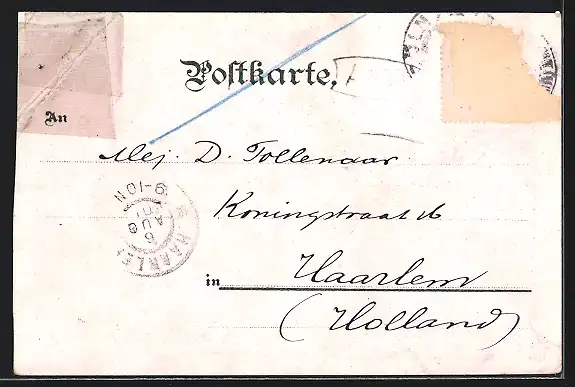 Postkarte.
An
Mej. D. Tollenaar
Koningstraat 16
in Haarlem
(Holland)
HAARLE
6 AUG
9-10N